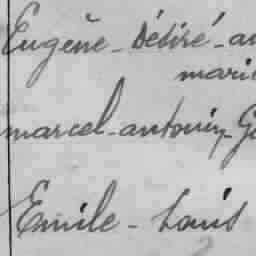 Eugène - Désiré - an
mari
marcel - antonin - G
Emile - Louis